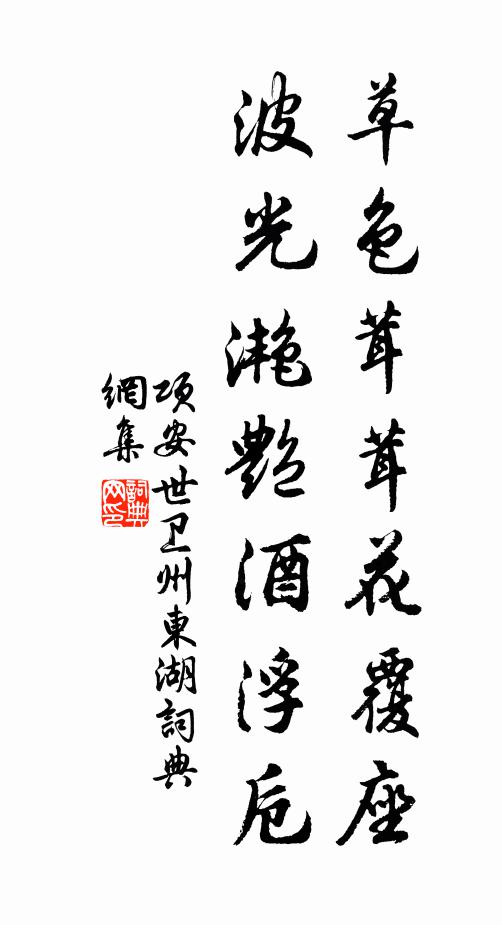 草色茸茸花覆座
波光滟艷酒浮卮
项安世卫州東湖詞典
網集
詞典網印